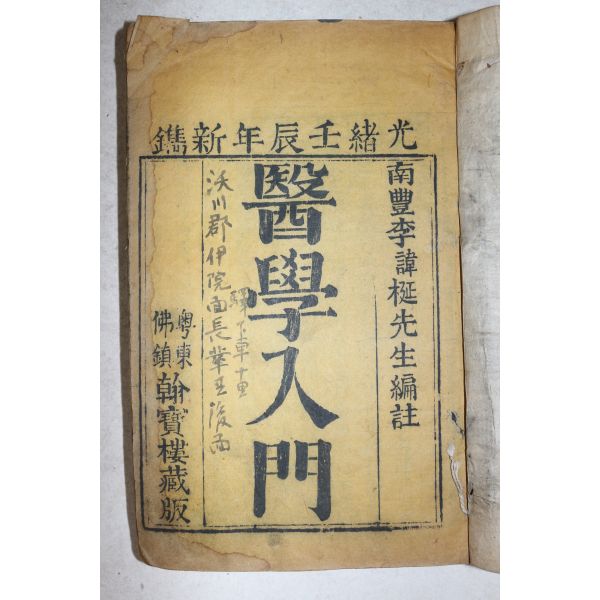 光緒壬辰年新鐫
南豐李諱梴先生編註
醫學入門
沃川郡伊院面長華里
驛下車
粵東
佛鎮
翰寶樓藏版